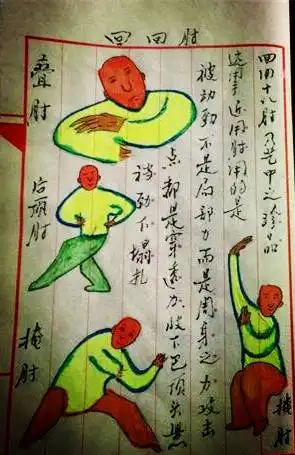 回回肘
回回十八肘乃艺中之珍品
远用手近用肘用的是
被动劲不是局部力而是周身之力攻击
点都是穿透力收下巴顶头悬
劲不塌扎
叠肘
后顶肘
掩肘
掩肘